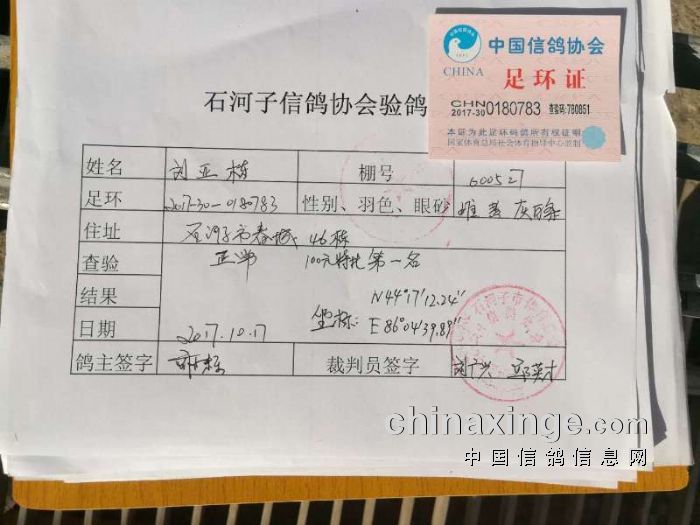 中国信鸽协会
CHINA 足环证
CHN
2017-30 0180783 查验码:780851
本证为此足环码鸽所有权证明
国家体育总局社会体育指导中心监制
石河子信鸽协会验鸽
姓名 刘亚栋 棚号 600527
足环 2017-30-0180783 性别、羽色、眼砂 雄 灰
住址 石河子市春城 46栋
查验 正常 100元特比第一名
结果 N44°17'12.24"
日期 2017.10.17 坐标: E86°04'39.89"
鸽主签字 裁判员签字
chinaxinge.com
中国信鸽信息网